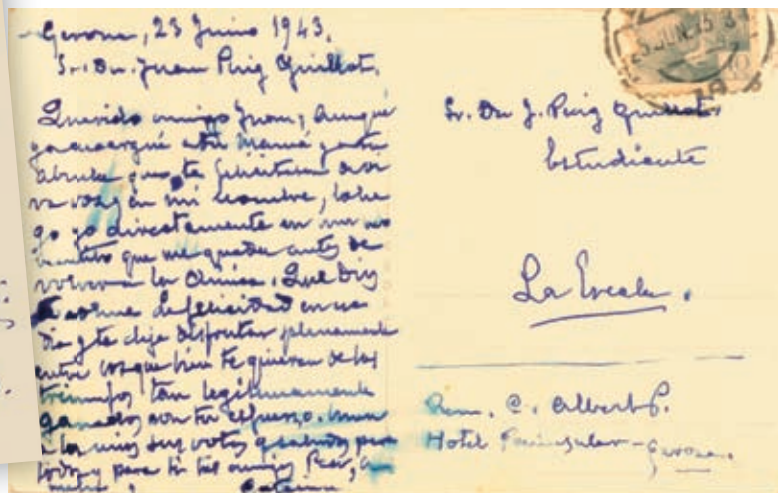 Gerona, 23 Junio 1943.
Sr. Dn. Juan Puig Quillot.
Querido amigo Juan; Aunque
ya encargué a tu Mamá y a tu
abuela que te felicitasen de vi
va voz en mi nombre, lo ha
go yo directamente en un mo
mentito que me queda antes de
volver a la clínica. Que Dios
te colme de felicidad en su
día y te deje disfrutar plenamente
entre los que bien te quieren de los
triunfos tan legítimamente
ganados con tu esfuerzo.
a los sus votos y saludos para
todos y para ti tu amiga
Caterina
Sr. Dn J. Puig Quillot
Estudiante
La Escala.
Rem. C. Albert P.
Hotel Peninsular - Gerona.
25 JUN. 43